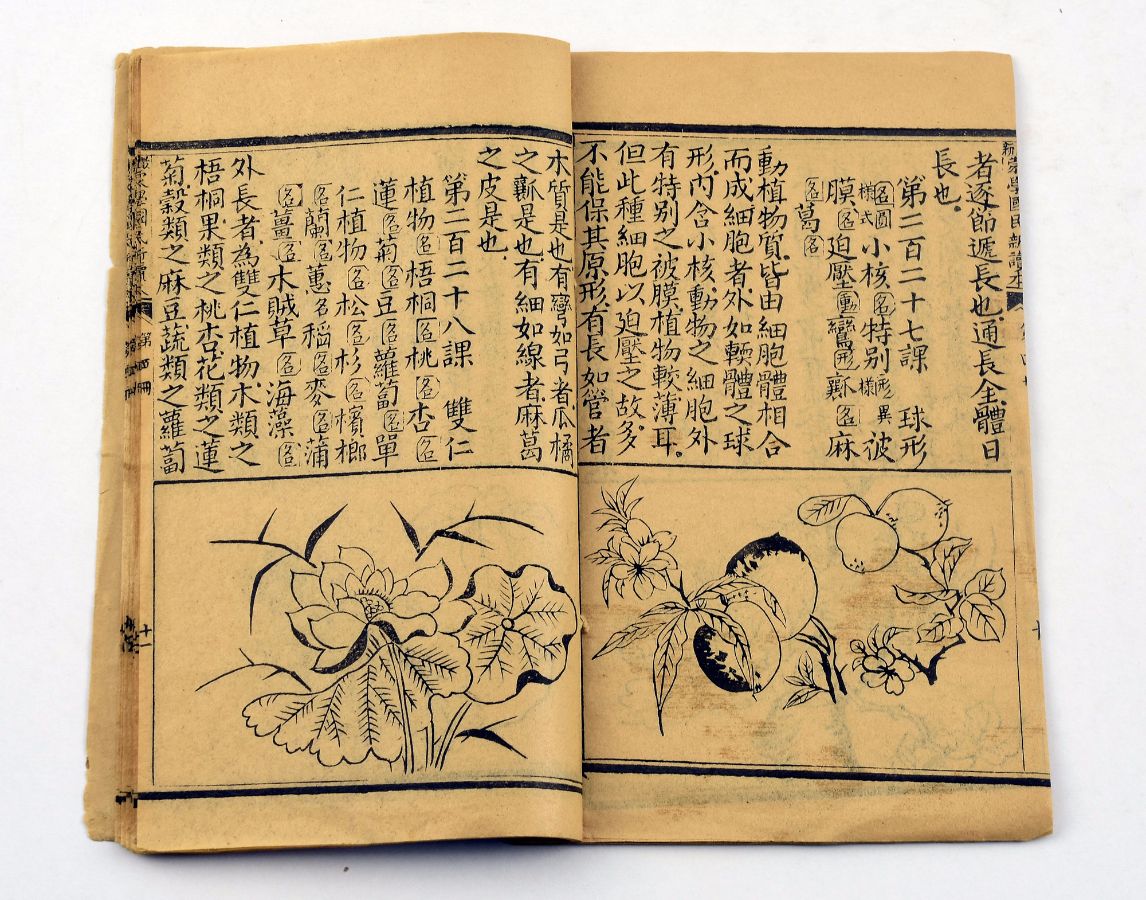 者逐節遞長也通長全體日
長也
第二百二十七課 球形
名圓樣式小核名特别形異樣被
膜名迫壓動彎形瓤名麻
名葛名
動植物質皆由細胞體相合
而成細胞者外如輭體之球
形內含小核動物之細胞外
有特别之被膜植物較薄耳。
但此種細胞以迫壓之故多
不能保其原形有長如管者
木質是也有彎如弓者瓜橘
之瓤是也有細如線者麻葛
之皮是也
第二百二十八課 雙仁
植物名梧桐名桃名杏名
蓮名菊名豆名蘿蔔名單
仁植物名松名杉名檳榔
名蘭名蕙名稻名麥名蒲
名薑名木賊草名海藻名
外長者為雙仁植物木類之
梧桐果類之桃杏花類之蓮
菊榖類之麻豆蔬類之蘿蔔
第四册
十一